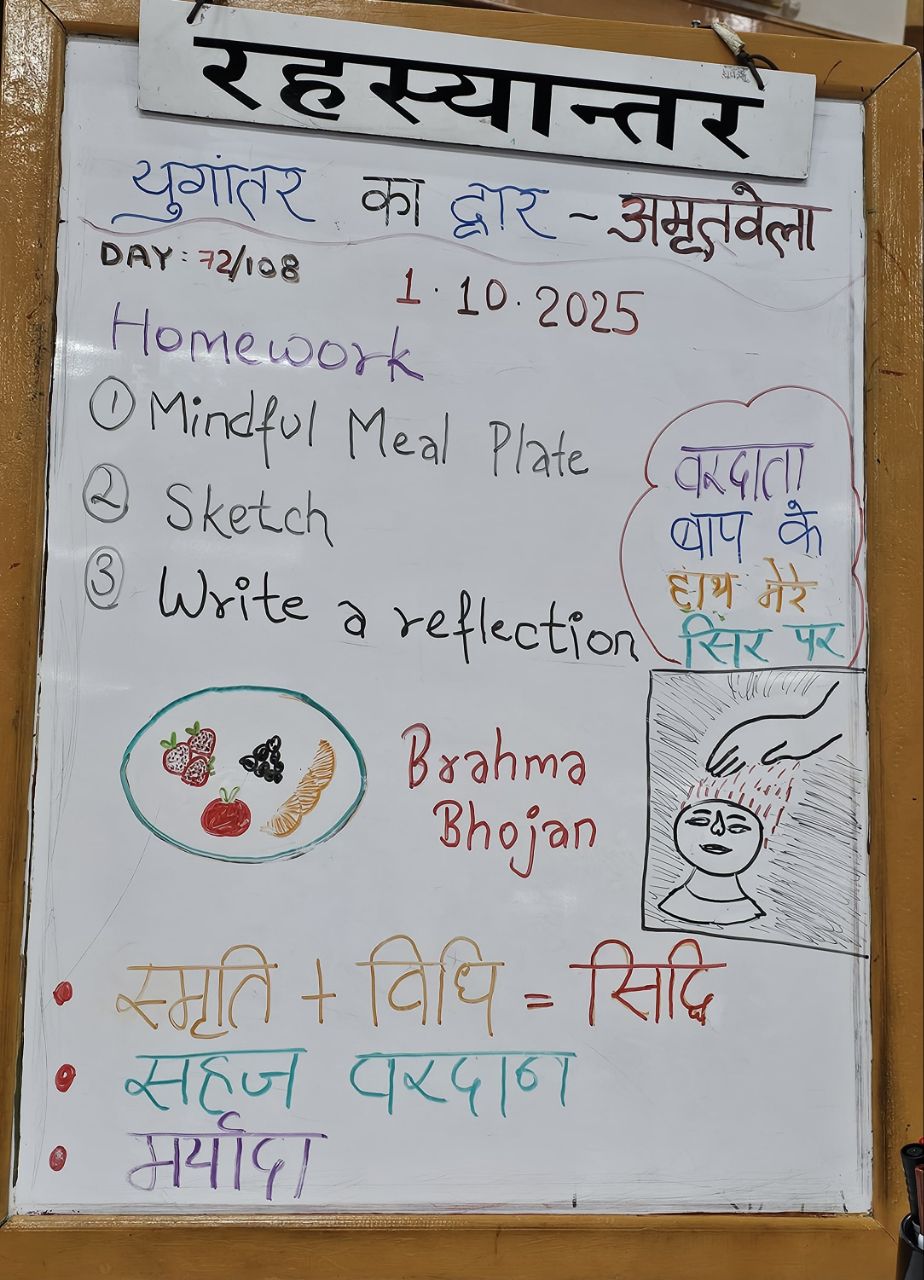 रहस्यान्तर
युगांतर का द्वार - अमृतवेला
DAY : 72/108
1.10.2025
Homework
① Mindful Meal Plate
② Sketch
③ Write a reflection
वरदाता
बाप के
हाथ मेरे
सिर पर
Brahma
Bhojan
• स्मृति + विधि = सिद्धि
• सहज वरदान
• मर्यादा